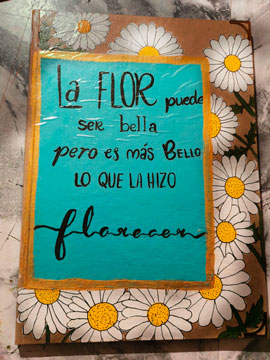 La FLOR puede
ser bella
pero es más Bello
LO QUE LA HIZO
florecer